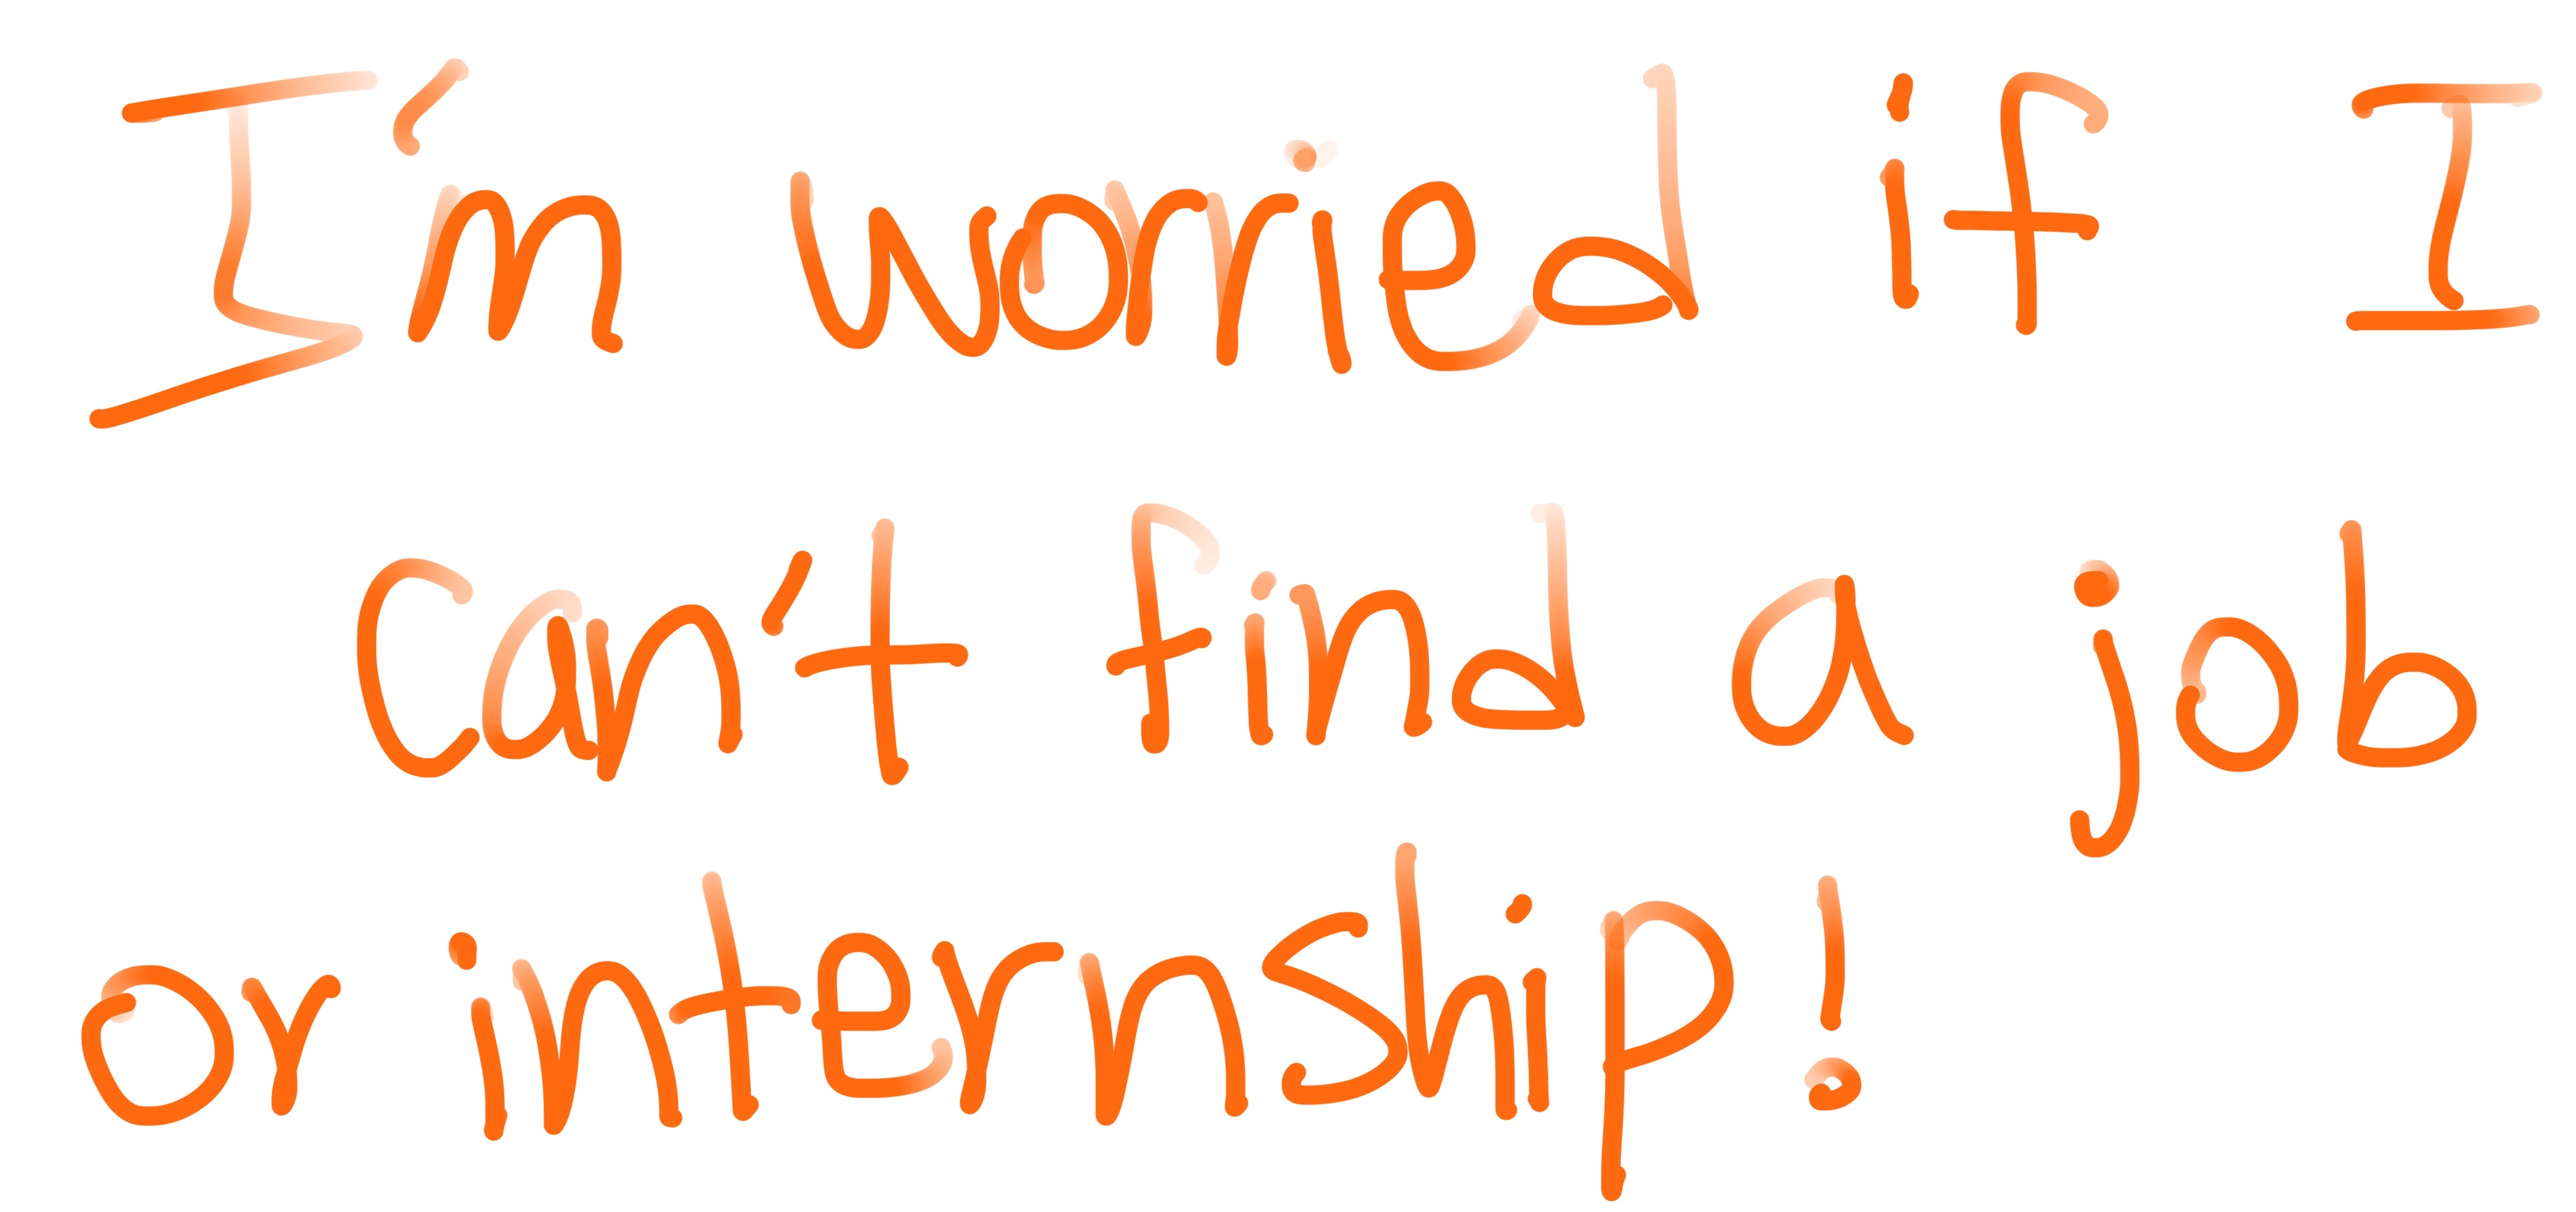 I'm worried if I
can't find a job
or internship!